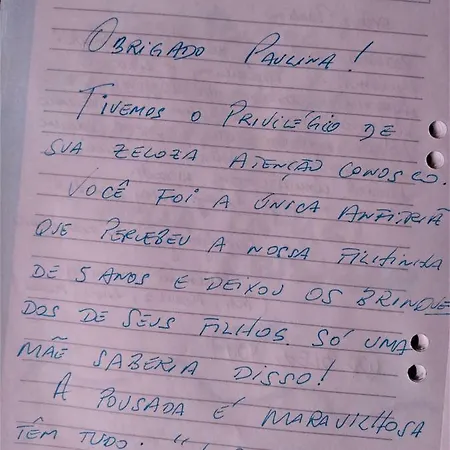 OBRIGADO PAULINA!
TIVEMOS O PRIVILÉGIO DE
SUA ZELOZA ATENÇÃO CONOSCO.
VOCÊ FOI A ÚNICA ANFITRIÃ
QUE PERCEBEU A NOSSA FILHINHA
DE 5 ANOS E DEIXOU OS BRINQUE
DOS DE SEUS FILHOS. SÓ UMA
MÃE SABERIA DISSO!
A POUSADA É MARAVILHOSA
TÊM TUDO.